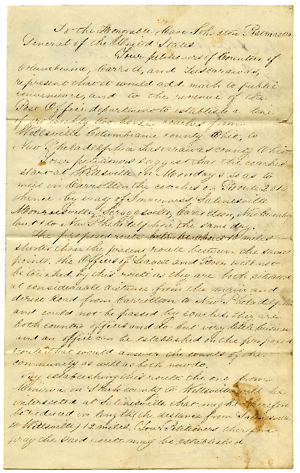 To the Honorable Post Master
General of the United States
Your petitioners of Counties of
Columbiana, Carroll, and Tuscarawas,
represent that it would add much to public
convenience, and to the revenue of the
Post Office department to establish a line
of two horse coaches from
Wellsville Columbiana county Ohio, to
New Philadelphia Tuscarawas county Ohio
Your petitioners suggest that the coaches
start at Wellsville on Mondays so as to
meet in Carrollton the coaches on Route
thence by way of Inverness, Salinesville
Carrollton, New
to New Philadelphia the same day.
The proposed route miles
shorter than the present route between the same
points. The Offices of Leeds and will not
be touched by this route as they are both situated
at considerable distance from the main and
direct Road from Carrollton to New Philadelphia
and could not be passed by coaches, they are
both country offices and do but very little business
and an office can be established on the proposed
route that would answer the wants of the
community as well as both now do.
By establishing this route the one from
Minerva in Stark county to Wellsville will be
intersected at Salinesville that may therefore
be reduced in length (the distance from Salinesville
to Wellsville) 12 miles. Your Petitioners therefore
pray the said route may be established